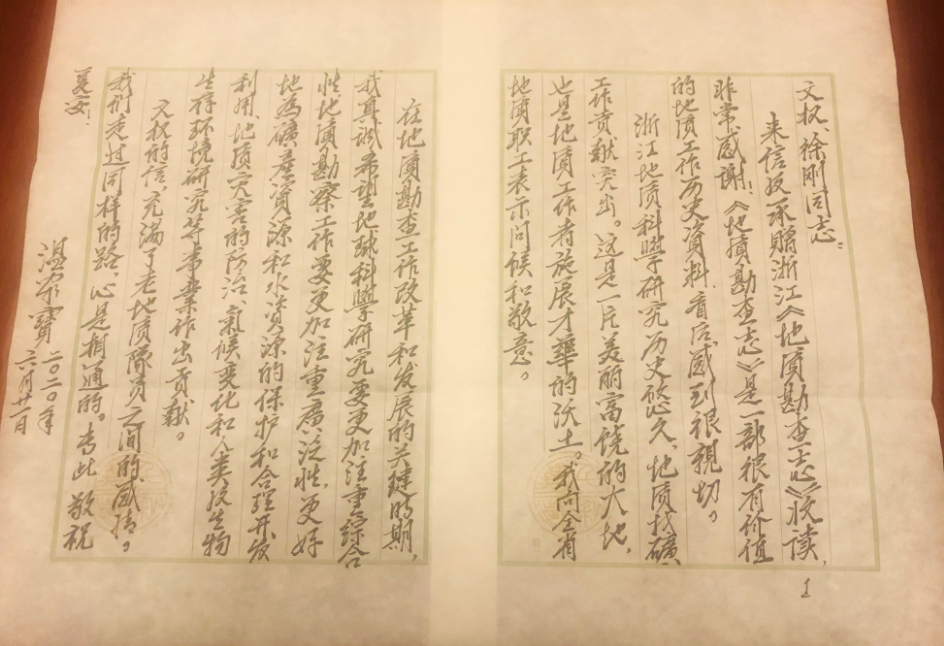 文权、徐刚同志：
来信及承赠浙江《地质勘查志》收读，
非常感谢！《地质勘查志》是一部很有价值
的地质工作历史资料，看后感到很亲切。
浙江地质科学研究历史悠久，地质找礦
工作贡献突出。这是一片美丽富饶的大地，
也是地质工作者施展才華的沃土。我向全省
地质职工表示问候和敬意。
1
在地质勘查工作改革和发展的关键时期，
我真诚希望地球科學研究要更加注重綜合
性，地质勘察工作要更加注重廣泛性，更好
地為礦產資源和水资源的保护和合理开发
利用、地质灾害的防治、氣候变化和人类及生物
生存环境研究等事業作出贡献。
文权的信，充满了老地质隊员之间的感情。
我们走过同样的路，心是相通的。专此 敬祝
夏安！
溫家寶 二〇二〇年
六月廿一日